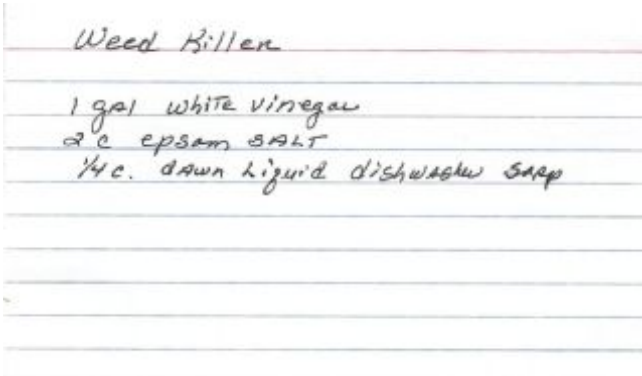 Weed Killer
1 gal white vinegar
2 c epsom SALT
1/4 c. dawn Liquid dishwasher soap